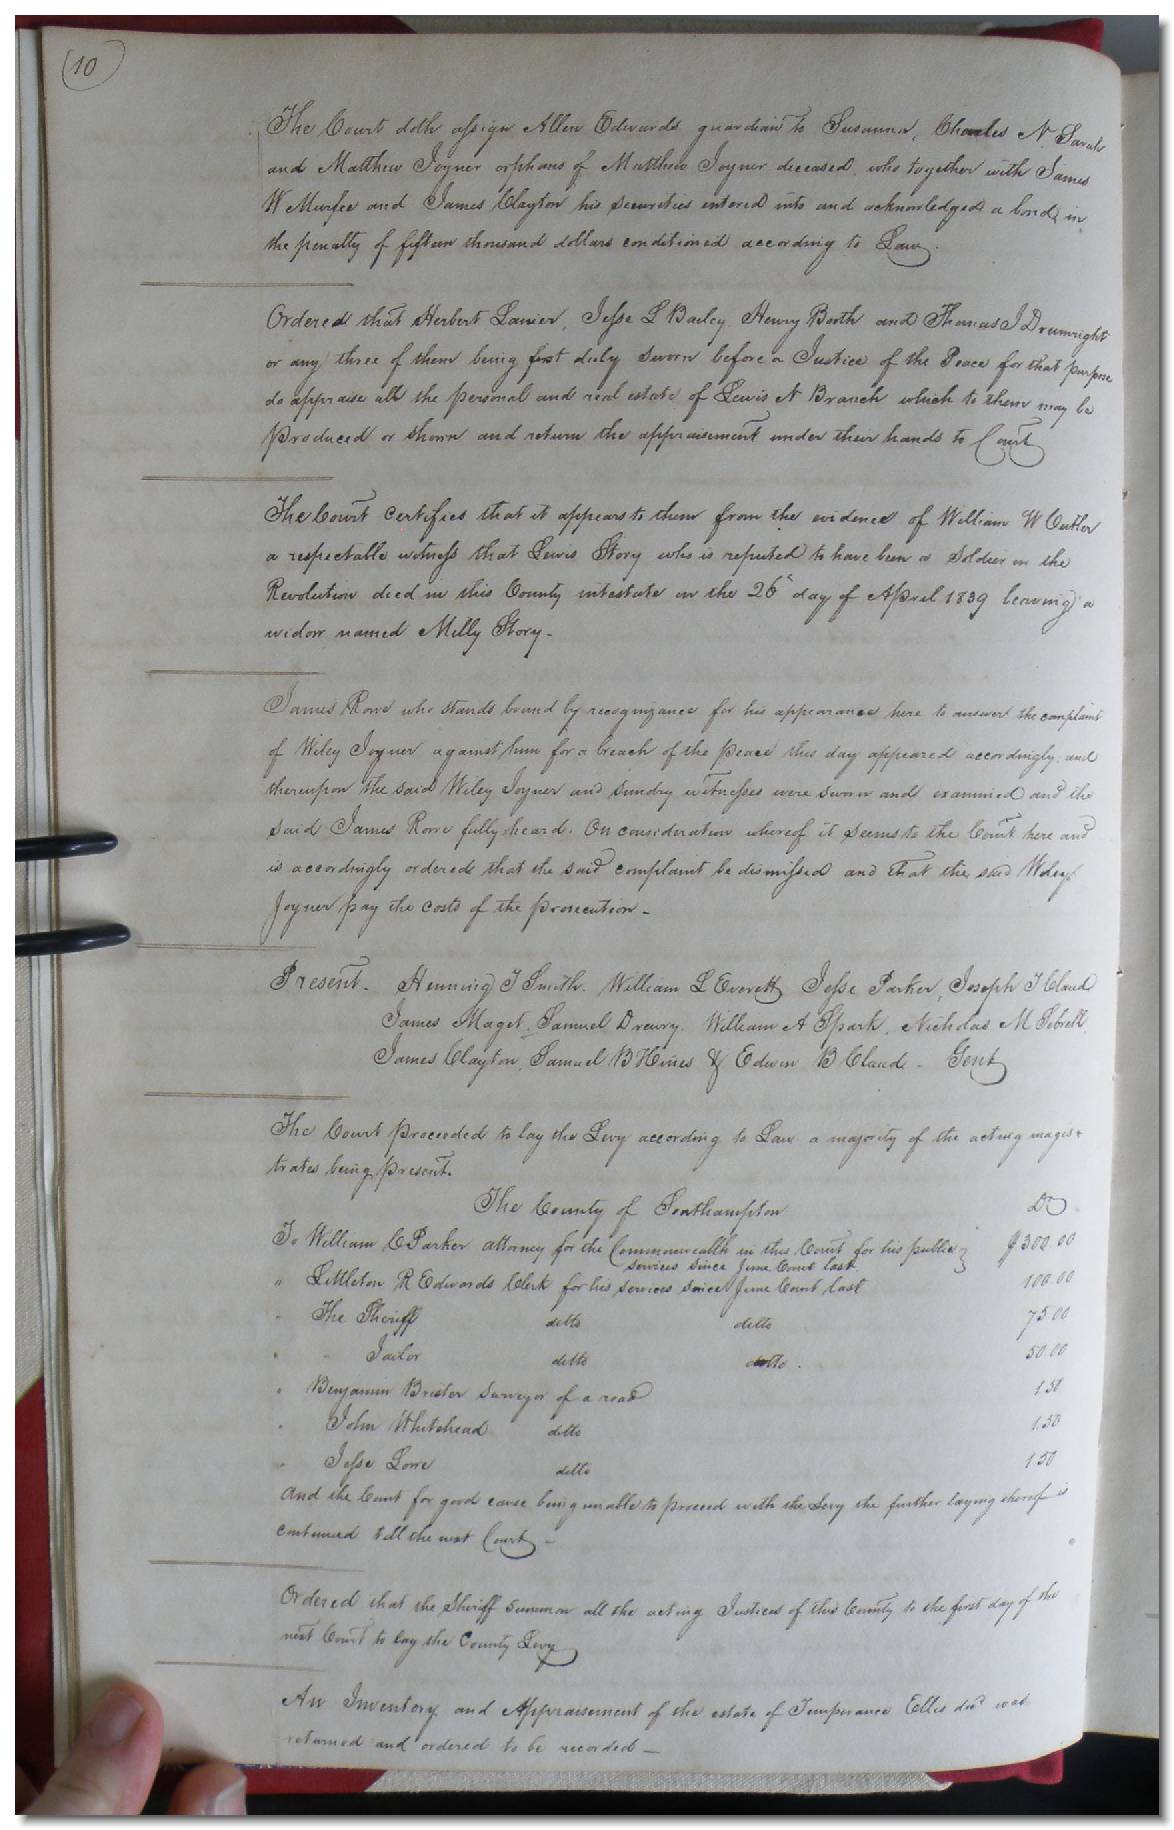 10
The Court doth assign Allen Edwards guardian to Susanna, Charles N. Sarah
and Matthew Joyner orphans of Matthew Joyner deceased, who together with James
W Murfee and James Clayton his securities entered into and acknowledged a bond in
the penalty of fifteen thousand dollars conditioned according to Law.
Ordered that Herbert Lanier, Jesse L Bailey, Henry Booth and Thomas J Drumwright
or any three of them being first duly sworn before a Justice of the Peace for that purpose
do appraise all the personal and real estate of Lewis N Branch which to them may be
produced or shown and return the appraisement under their hands to Court
The Court certifies that it appears to them from the evidence of William W Cutler
a respectable witness that Lewis Story who is reputed to have been a Soldier in the
Revolution died in this County intestate on the 26 day of April 1839 leaving a
widow named Milly Story -
James Rowe who stands bound by recognizance for his appearance here to answer the complaint
of Wiley Joyner against him for a breach of the peace this day appeared accordingly, and
thereupon the said Wiley Joyner and sundry witnesses were sworn and examined and the
said James Rowe fully heard. On consideration whereof it seems to the Court here and
is accordingly ordered that the said complaint be dismissed and that the said Wiley
Joyner pay the costs of the prosecution -
Present - Henning T Smith, William L Everett, Jesse Parker, Joseph T Claud
James Maget, Samuel Drewry, William A Spark, Nicholas M Sebrell,
James Clayton, Samuel B Hines & Edwin B Claud - Gent
The Court proceeded to lay the Levy according to Law a majority of the acting magis
trates being present.
The County of Southampton Dr
To William C Parker attorney for the Commonwealth in this Court for his public $300.00
services since June Court last
" Littleton R Edwards Clerk for his services since June Court last 100.00
" The Sheriff ditto ditto 75.00
" " Jailor ditto ditto. 50.00
" Benjamin Brister Surveyor of a road 1.50
" John Whitehead ditto 1.50
" Jesse Lowe ditto 1.50
And the Court for good cause being unable to proceed with the Levy the further laying thereof is
continued till the next Court -
Ordered that the Sheriff summon all the acting Justices of this County to the first day of the
next Court to lay the County Levy
An Inventory and Appraisement of the estate of Temperance Ellis decd was
returned and ordered to be recorded -